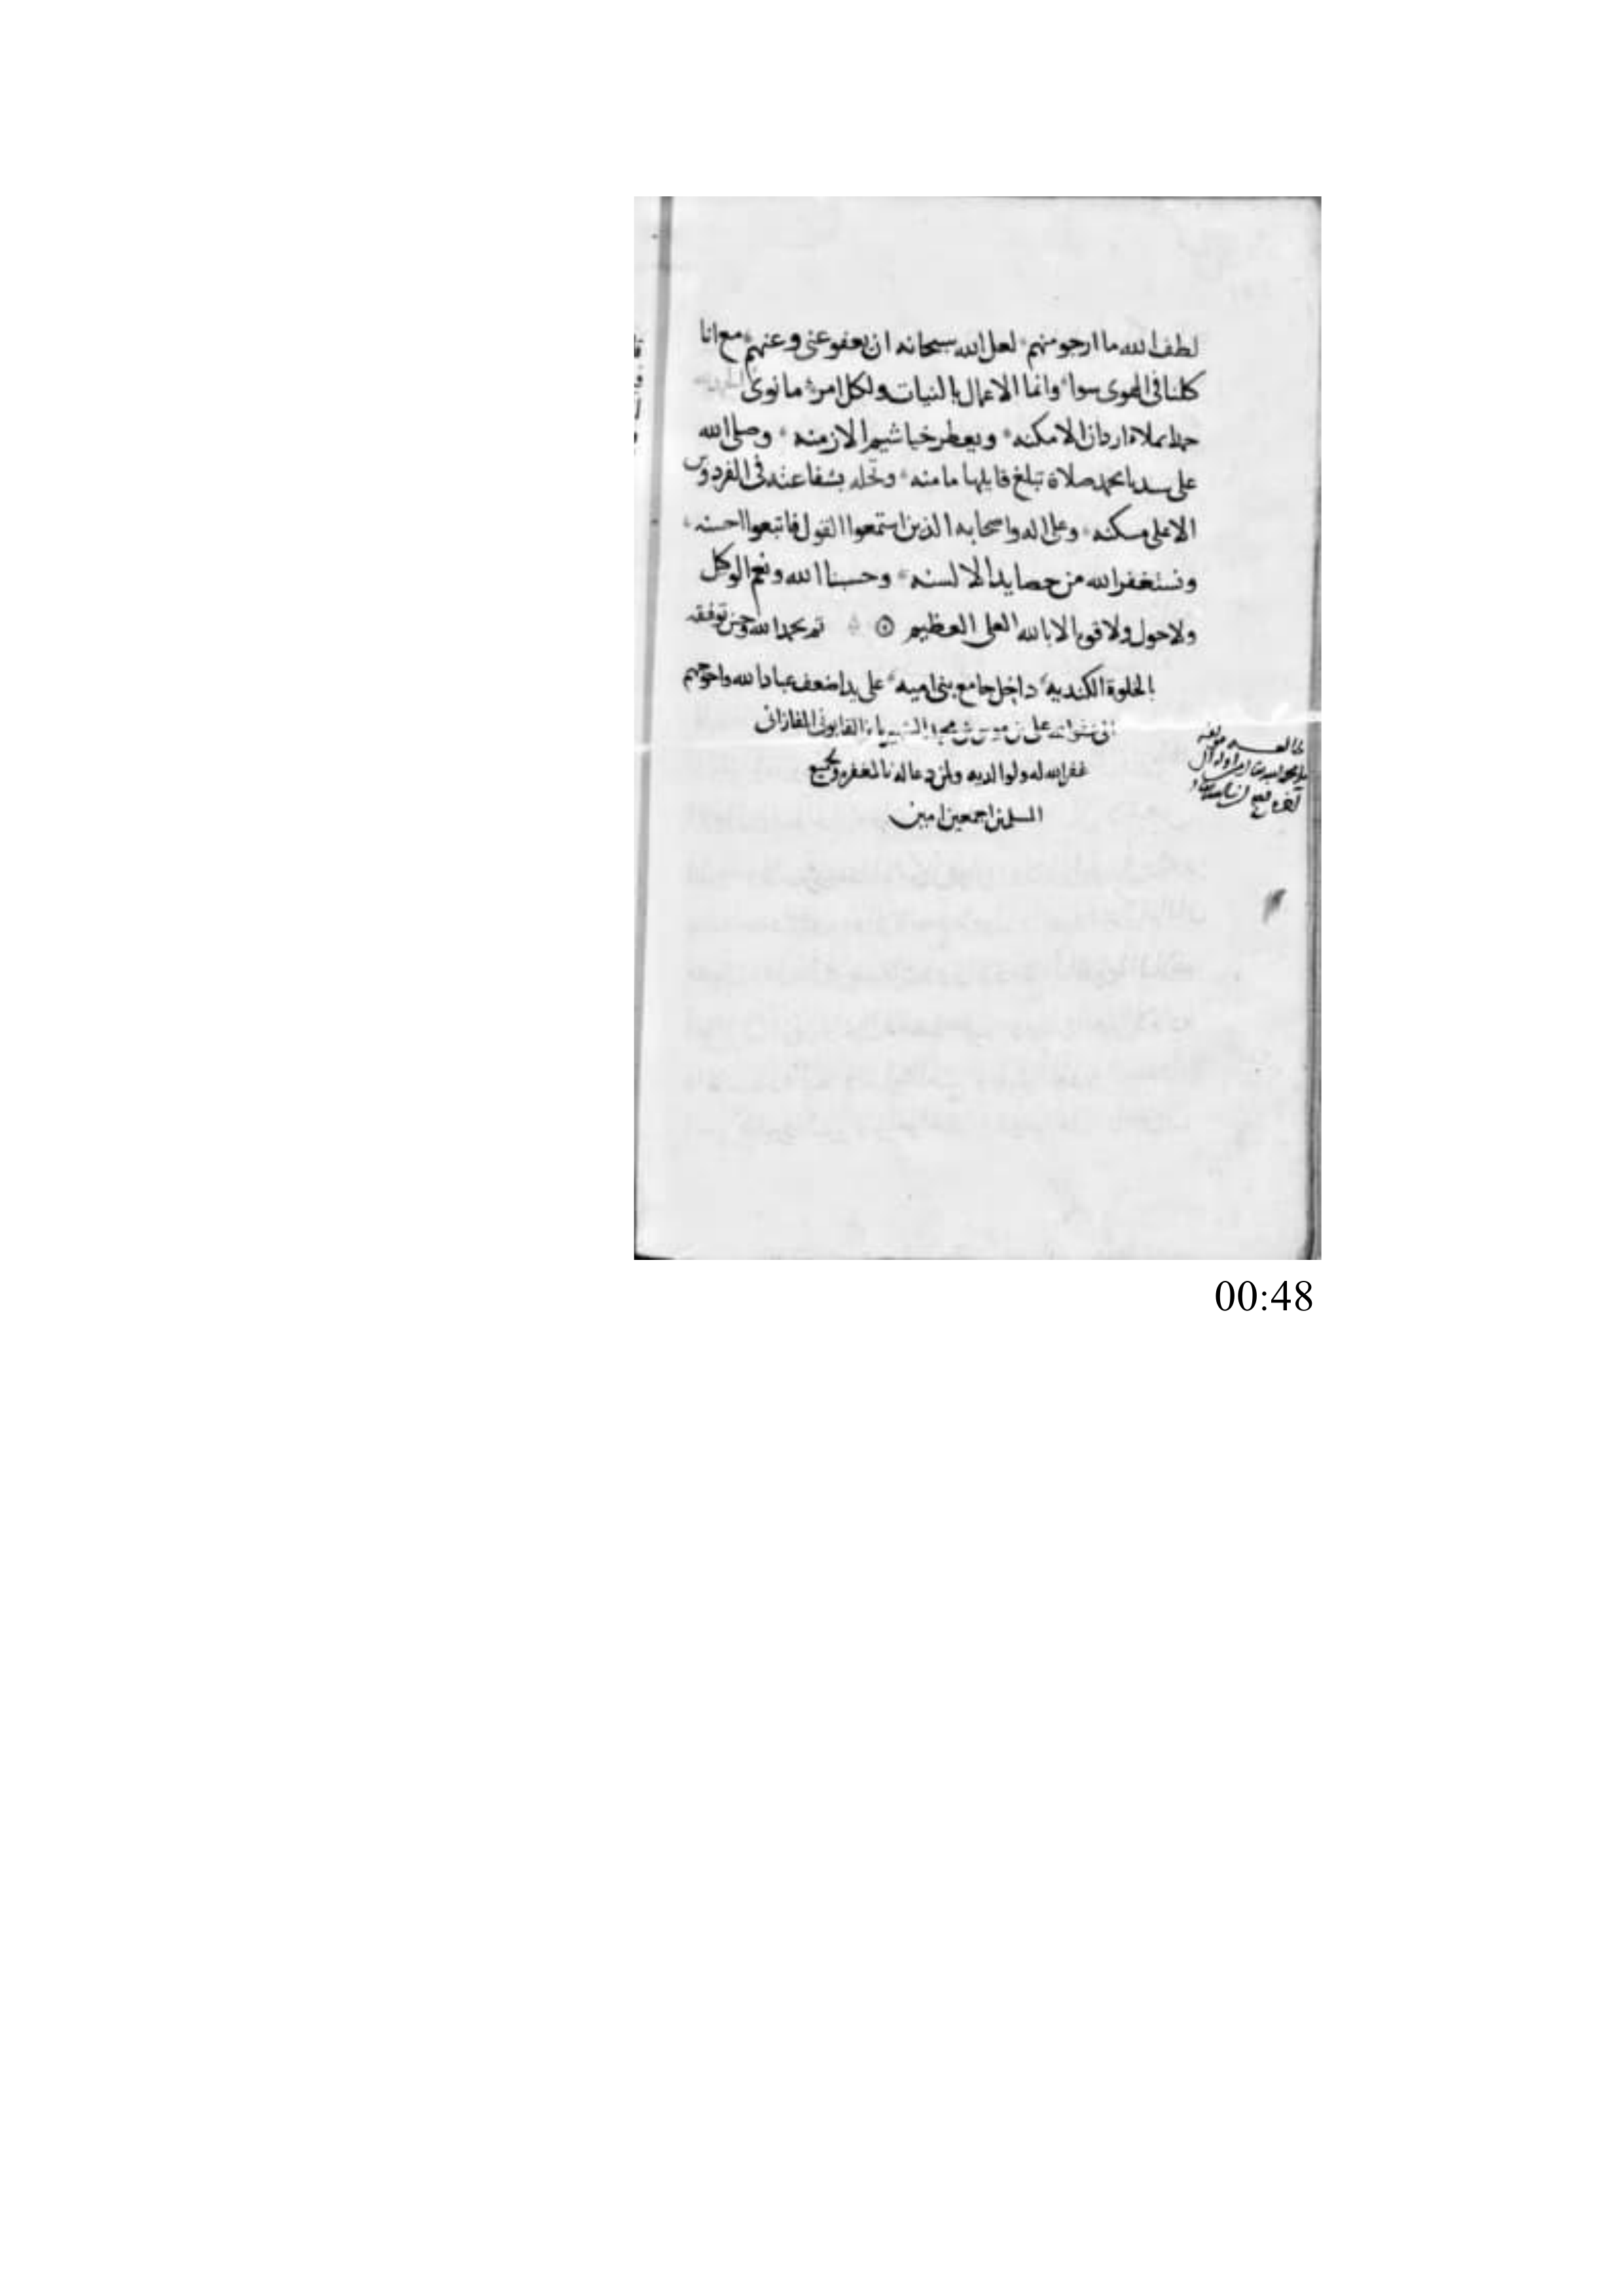 لطف الله ما ارجو منهم لعل الله سبحانه ان يعفو عني وعنهم مع انا
كلنا في الهوى سواء وانما الاعمال بالنيات ولكل امرئ ما نوى
حمدا يملاء اردان الامكنه ويعطر خياشيم الازمنه وصلى الله
على سيدنا محمد صلاة تبلغ قايلها مامنه وتحله بشفاعته في الفردوس
الاعلى مسكنه وعلى اله واصحابه الذين استمعوا القول فاتبعوا احسنه
ونستغفر الله من حصايد الالسنه وحسبنا الله ونعم الوكيل
ولا حول ولا قوة الا بالله العلي العظيم تم بحمد الله وحسن توفيقه
بالخلوة الكنديه داخل جامع بني اميه على يد اضعف عباد الله واحوجهم
الى علي بن محمد الشهير القابوني
غفر الله له ولوالديه ولمن دعا له بالمغفرة ولجميع
المسلمين اجمعين امين
طالعه
00:48